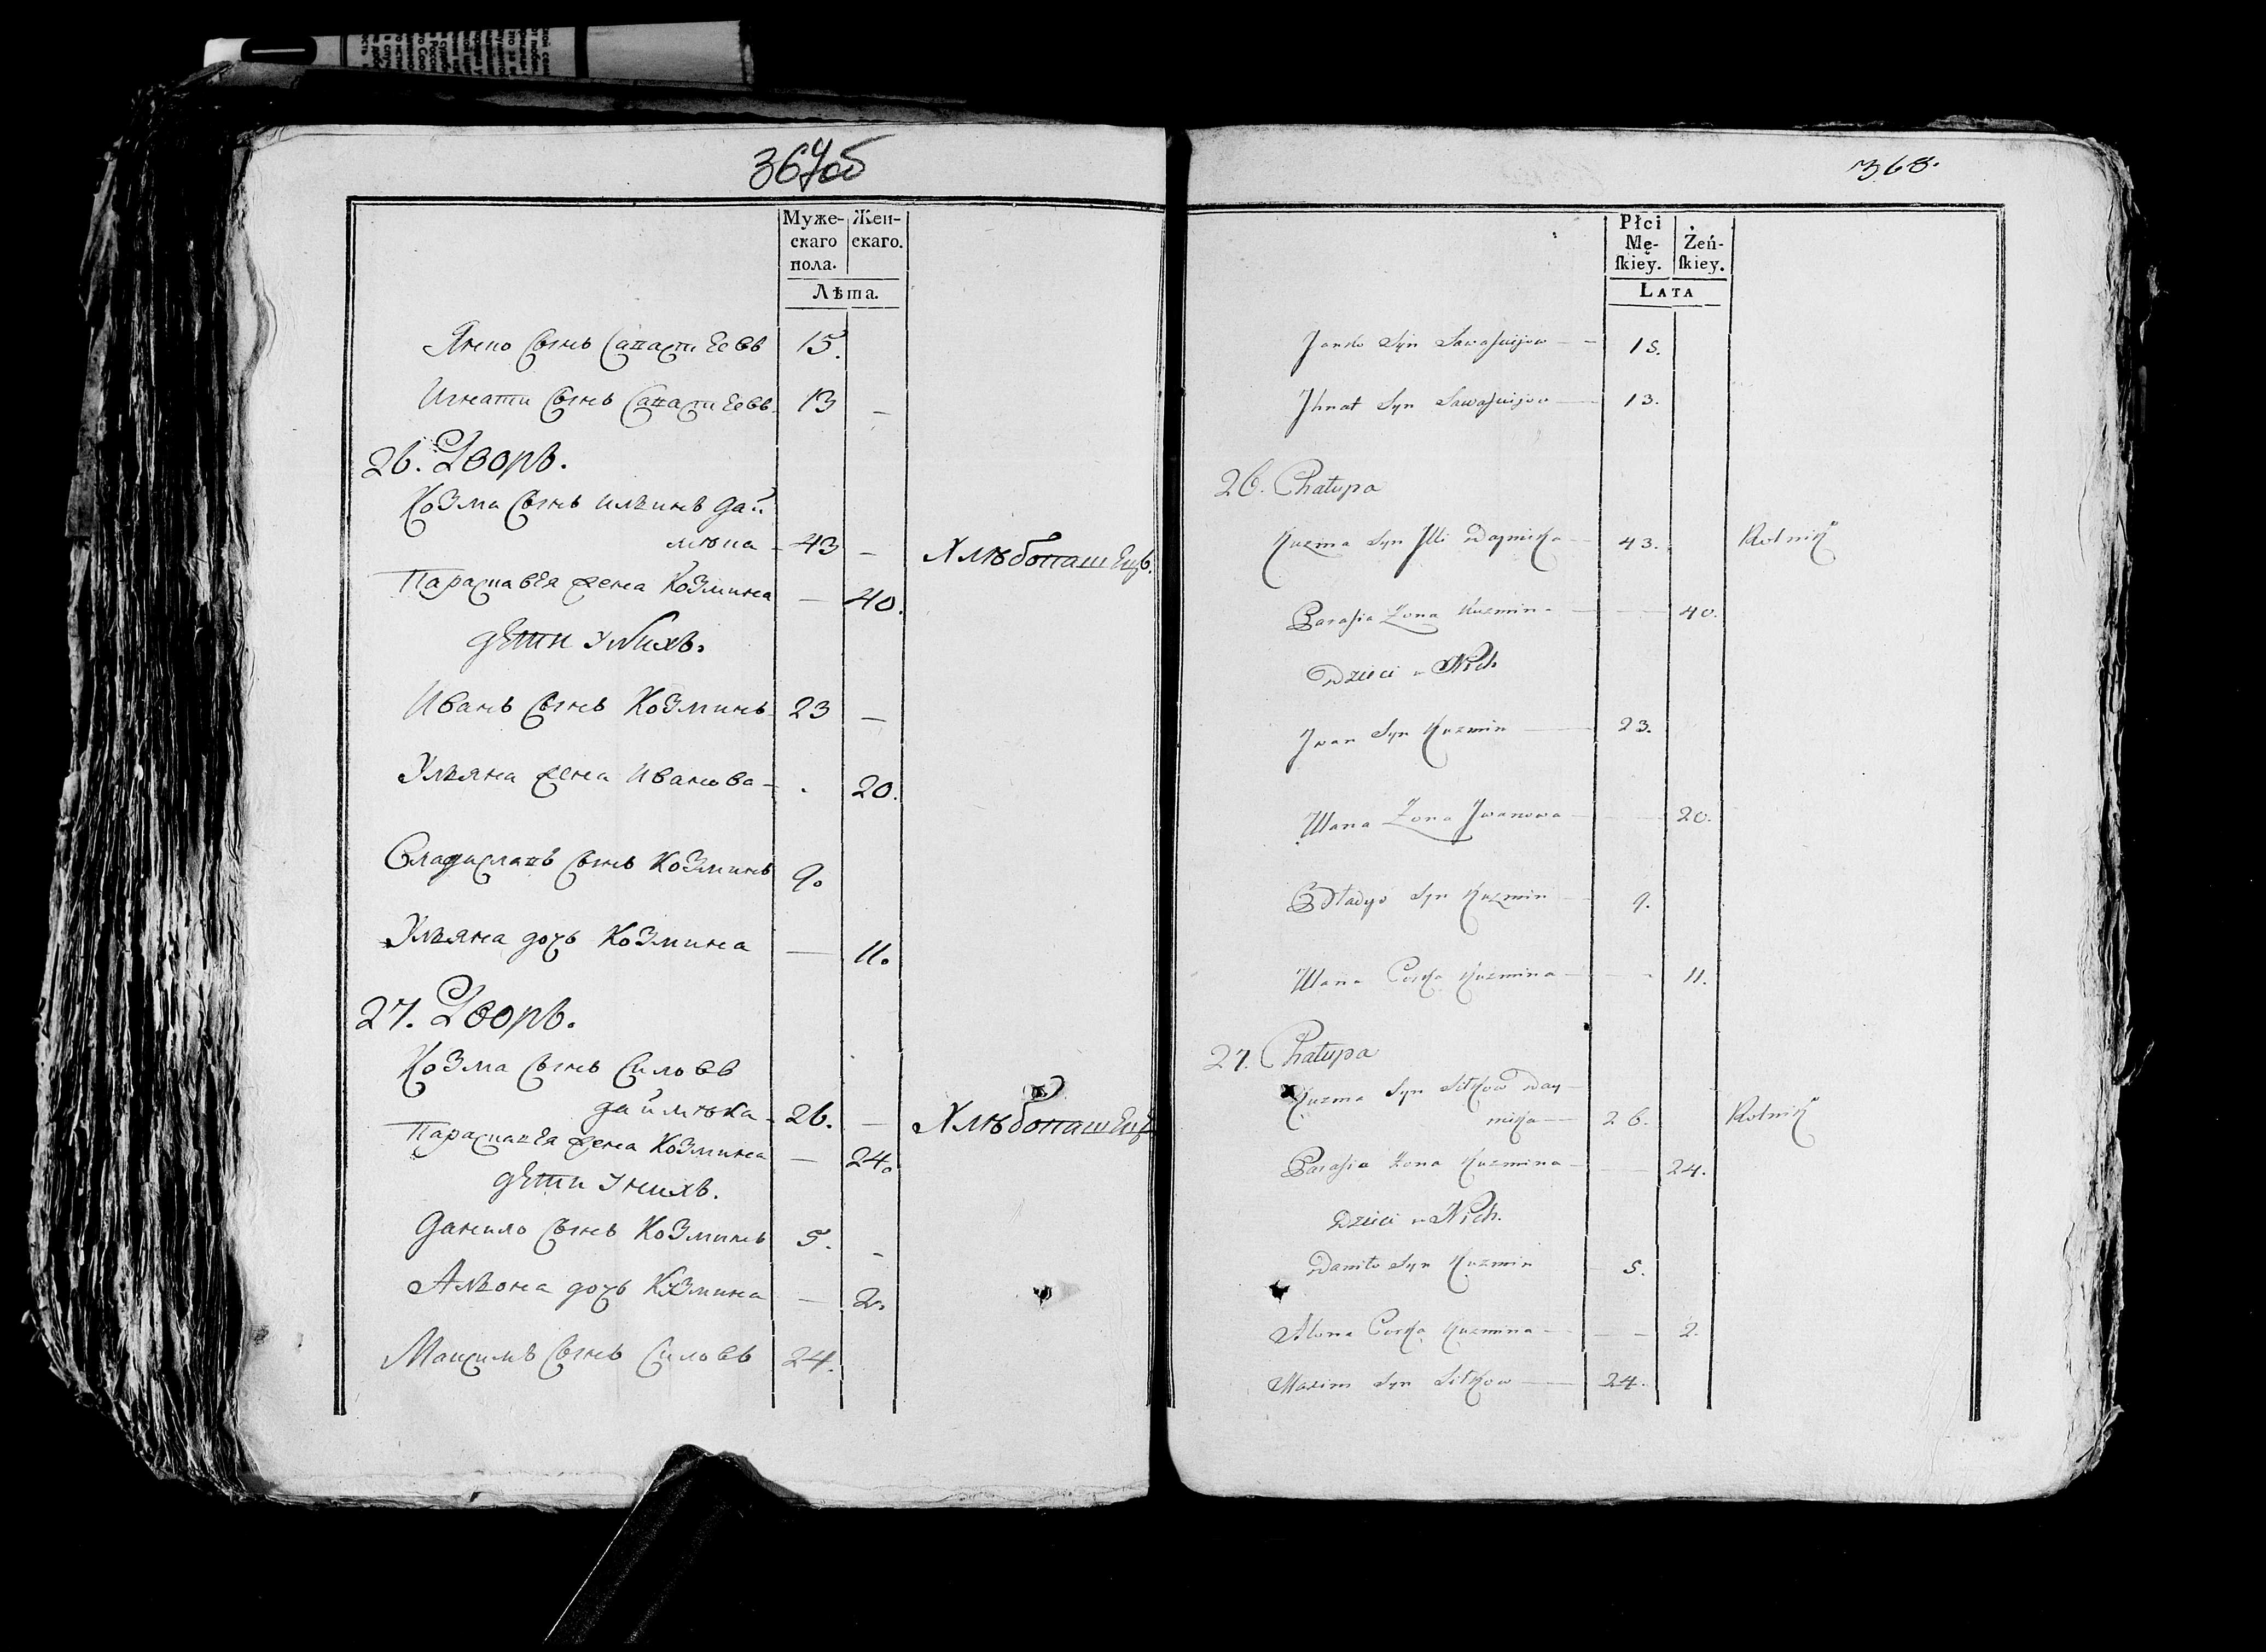 367об
Муже-
скаго
пола.
Жен-
скаго.
Лѣта.
Янко Сынъ Сапастѣевъ 15.
Игнати Сынъ Сапастѣевъ 13 –
26. Дворъ.
Козма Сынъ Илѣинъ Дай
мѣка – 43 – Хлѣбопашецъ.
Параскавея жена Козмина – 40.
дети у нихъ.
Иванъ Сынъ Козминъ 23 –
Улѣяна жена Иванова – . 20.
Владиславъ Сынъ Козминъ 9.
Улѣяна дочь Козмина – 11.
27. Дворъ.
Козма Сынъ Силовъ
даймѣка – 26. – Хлѣбопашецъ
Параскавея жена Козмина – 24.
дети у нихъ.
Данило Сынъ Козминъ 5. –
Алѣона дочь Козмина – 2.
Максимъ Сынъ Силовъ 24.
368.
Płci
Mę-
ſkiey.
Żeń-
ſkiey.
LATA
Janko Syn 15.
Ihnat Syn 13.
26. Chałupa
Kuzma Syn Illi Daymika 43. Rolnik
Parasia Zona Kuzmina – – 40.
Dzieci u Nich
Jwan Syn Kuzmin 23.
Ulana Zona Jwanowa – – 20.
Władys Syn Kuzmin 9.
Ulana Corka Kuzmina – – 11.
27. Chałupa
Kuzma Syn Siłkow Day-
mika 26. Rolnik
Parasia Zona Kuzmina – – 24.
Dzieci u Nich.
Daniło Syn Kuzmin 5.
Alona Corka Kuzmina – – 2.
Maxim Syn Siłkow 24.